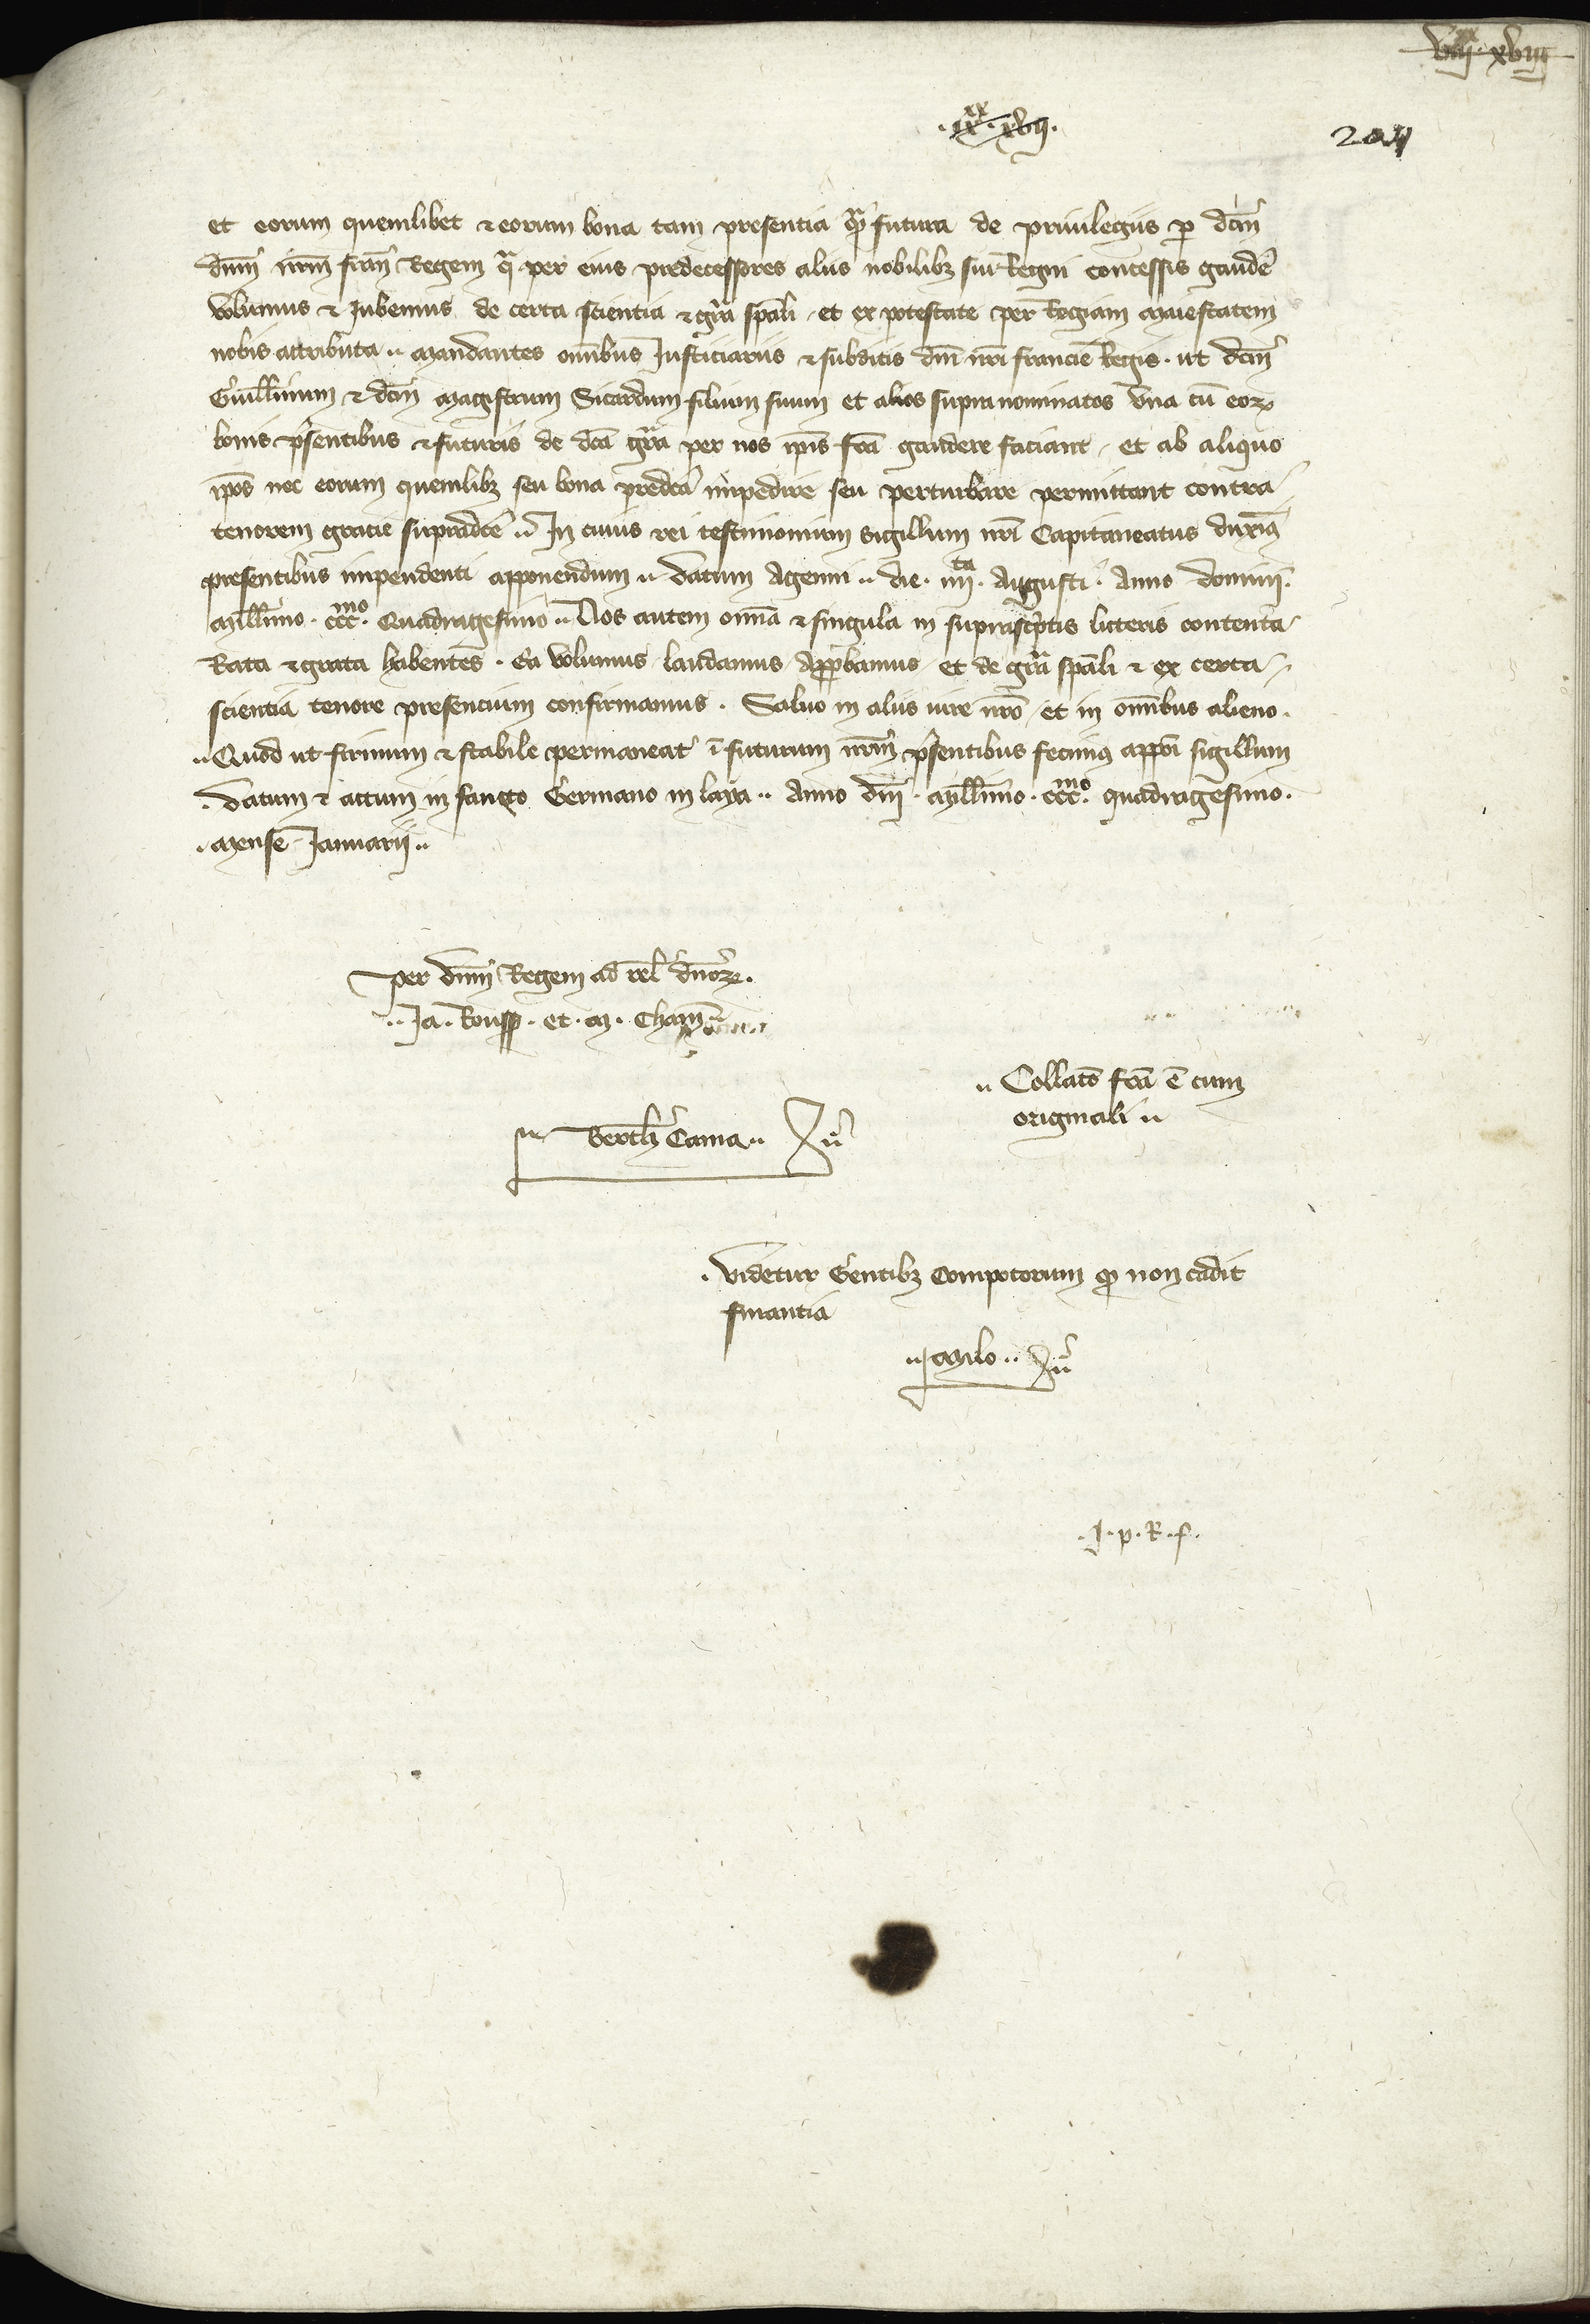 xvii
201
et eorum quemlibet ⁊ eorum bona tam presentia qm̃ futura de priuilegiis per dcm̃
dnm̃ nrm̃ franc̃ Regem qͣ per eius predecessores aliis nobilibꝫ sui Regni concessis gaudẽ
volumus ⁊ Jubemus de certa scientia ⁊ grã spãli et ex potestate per Regiam Maiestatem
nobis attributa Mandantes om̃ibus Justiciariis ⁊ subditis dñi nrĩ francie Regis ut dcm̃
Guillm̃um ⁊ dcm̃ Magistrum Sicardum filium suum et alios supranominatos Vna cũ eoꝝ
bonis pñsentibus ⁊ futuris de dcã grã per nos ipĩs fcã gaudere faciant et ab aliquo
ipõs nec eorum quemlibꝫ seu bona predcã impedire seu perturbare permittant contra
tenorem gracie supradcẽ In cuius rei testimonium sigillum nrĩ Capitaneatus duximꝰ
presentibus impendenti apponendum datum Agenni die iiiiᵗᵃ Augusti Anno domini
Mill̃imo cccᵐᵒ Quadragesimo Nos autem om̃ia ⁊ singula in suprascp̃tis litteris contenta
Rata ⁊ grata habentes Ea volumus laudamus approbamus et de grã spãli ⁊ ex certa
scientia tenore presencium confirmamus Saluo in aliis iure nrõ et in om̃ibus alieno
Quod ut firmum ⁊ stabile permaneat ĩ futurum nrm̃ pñsentibus fecimꝰ appõi sigillum
datum ⁊ actum in sancto Germano in laya Anno dñi Mill̃imo cccᵐᵒ quadragesimo
Mense Januarii
per dnm̃ Regem ad rel̃ dñoꝝ
Ja. Roussꝭ et M. Cham̃
Collatõ fcã ẽ cum
originali
Berth̃
videtur Gentibꝫ Compotorum qꝫ non cadit
financia
Milo
J. p. R. f.